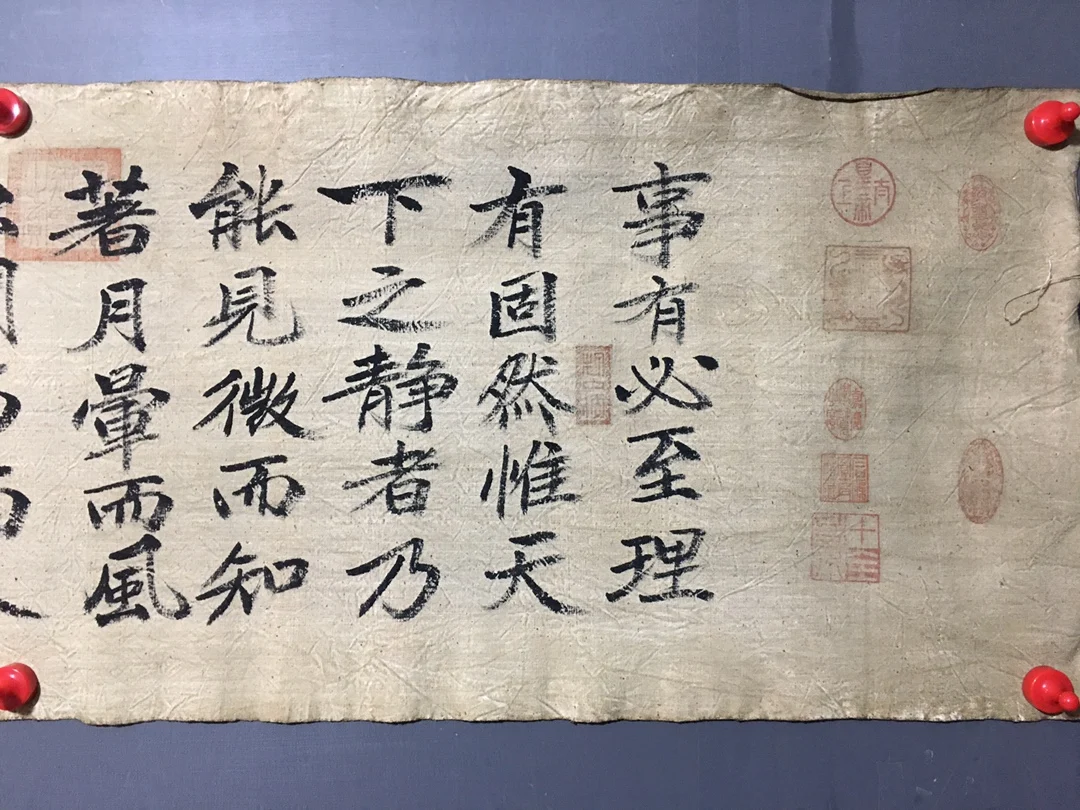 事有必至理
有固然惟天
下之静者乃
能見微而知
著月暈而風